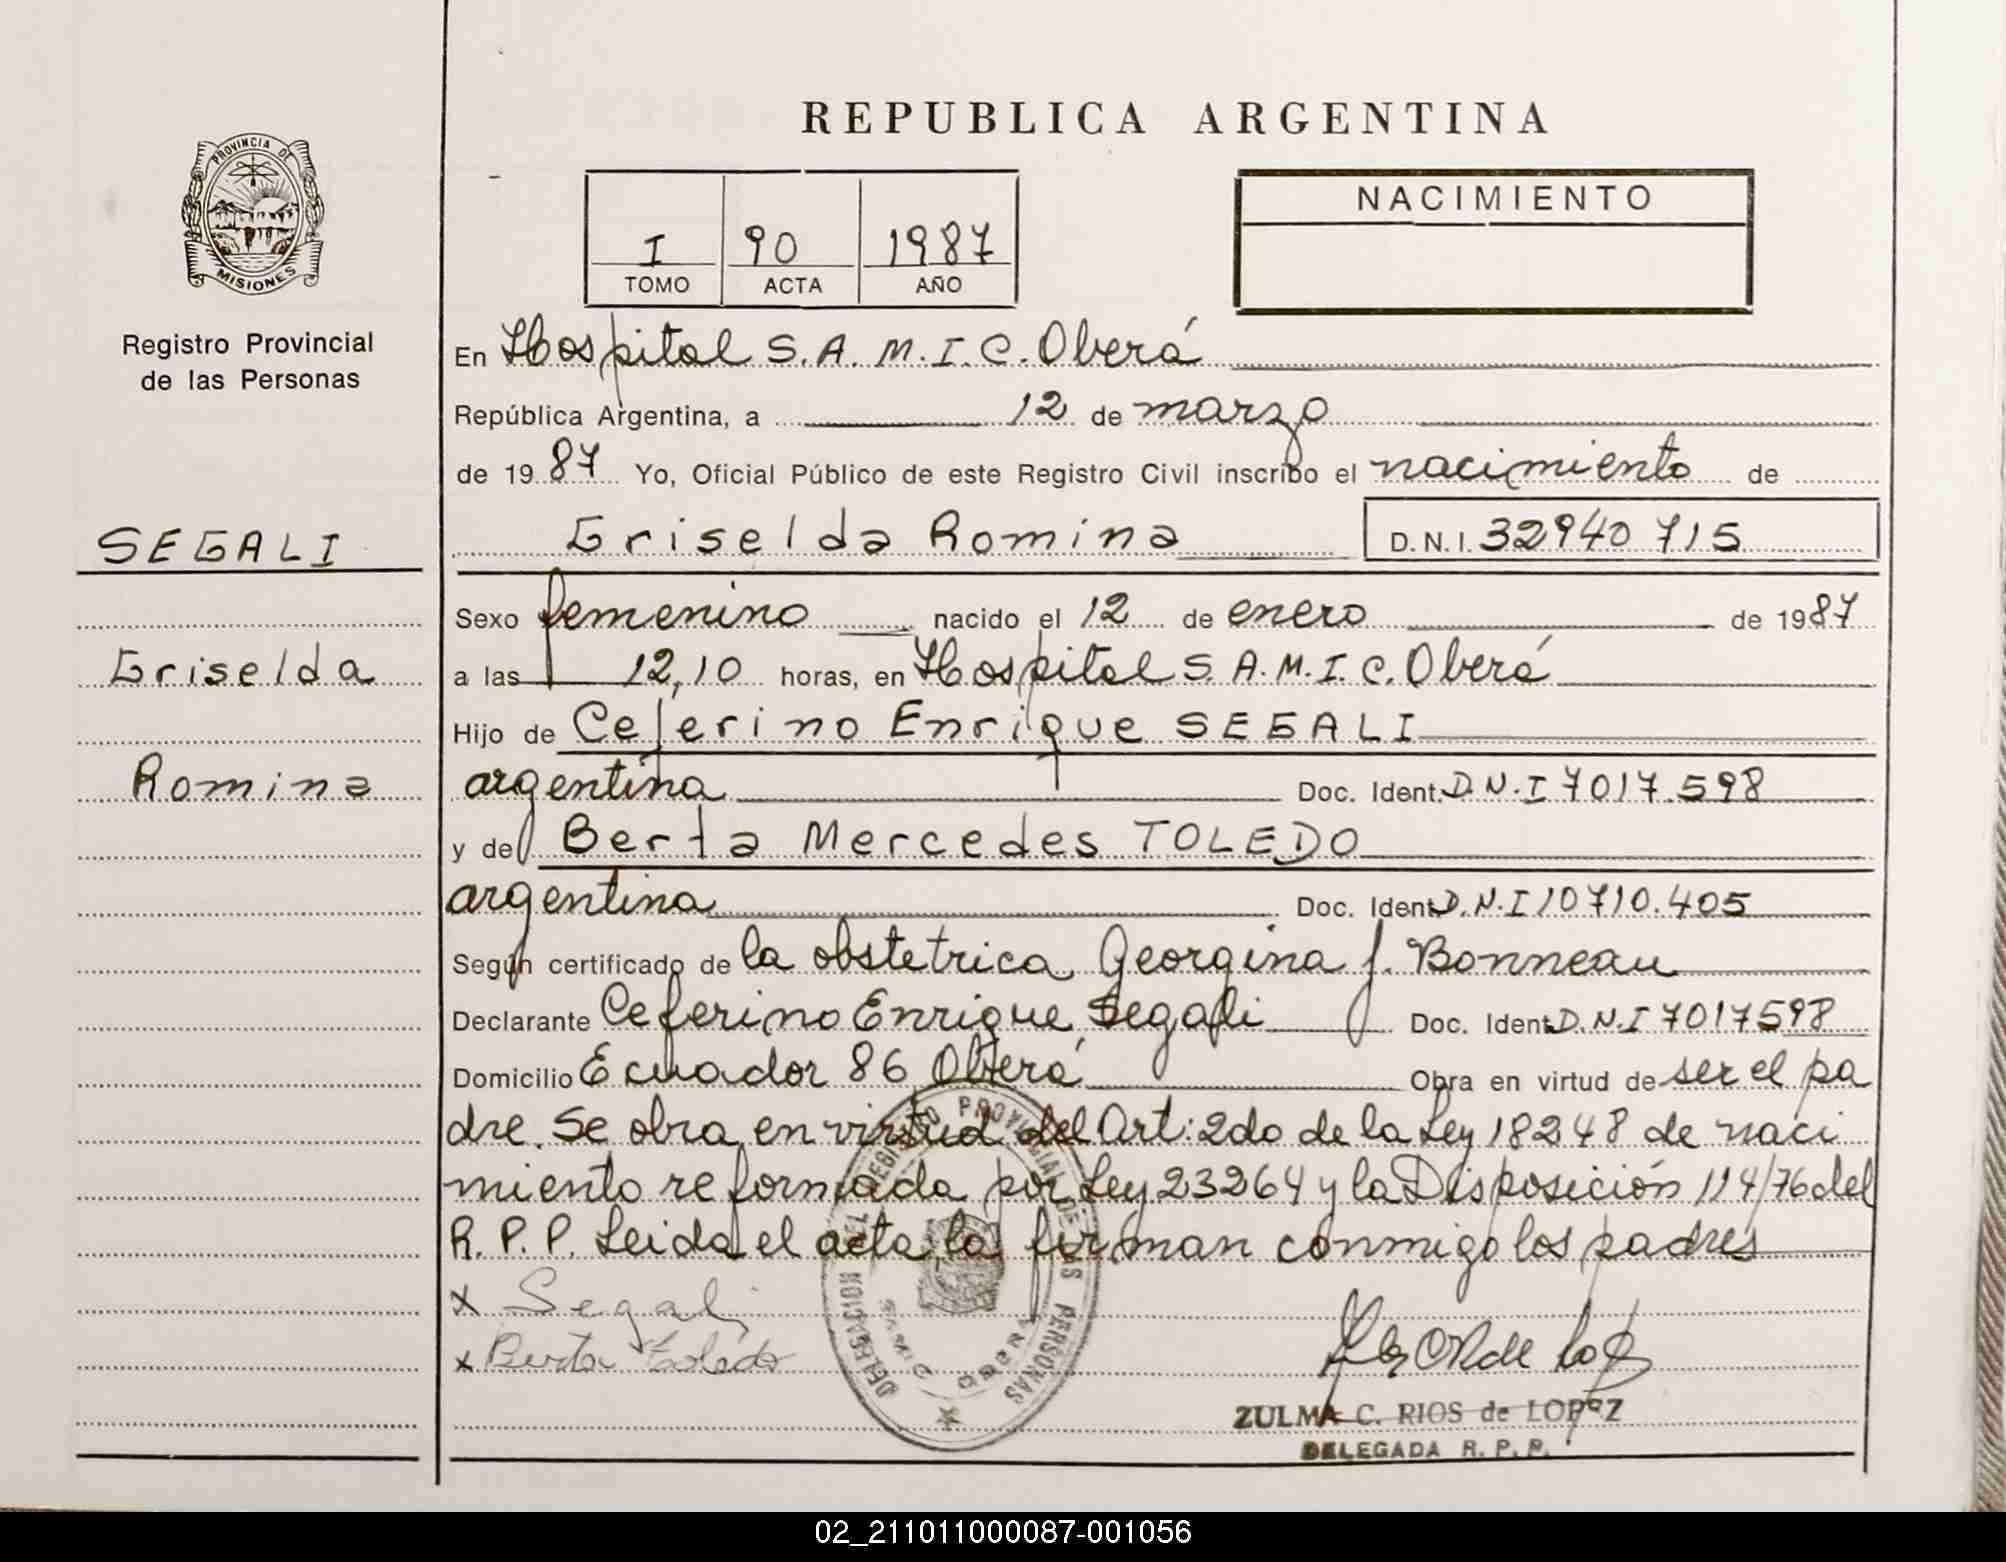 REPUBLICA ARGENTINA
PROVINCIA DE
MISIONES
Registro Provincial
de las Personas
SEGALI
Griselda
Romina
I 90 1987
TOMO ACTA AÑO
NACIMIENTO
En Hospital S.A.M.I.C. Oberá
República Argentina, a 12 de marzo
de 1987 Yo, Oficial Público de este Registro Civil inscribo el nacimiento de
Griselda Romina D.N.I. 32940715
Sexo femenino nacido el 12 de enero de 1987
a las 12,10 horas, en Hospital S.A.M.I.C. Oberá
Hijo de Ceferino Enrique SEGALI
argentina Doc. Ident. D.N.I 7017.598
y de Berta Mercedes TOLEDO
argentina Doc. Ident. D.N.I 10710.405
Según certificado de la obstetrica Georgina J. Bonneau
Declarante Ceferino Enrique Segali Doc. Ident. D.N.I 7017598
Domicilio Ecuador 86 Oberá Obra en virtud de ser el pa
dre. Se obra en virtud del Art: 2do de la Ley 18248 de naci
miento reformada por Ley 23264 y la Disposición 114/76 del
R.P.P. Leida el acta la firman conmigo los padres
x Segali
x Berta Toledo
DELEGACION DEL REGISTRO PROVINCIAL DE LAS PERSONAS
OBERA
ZULMA C. RIOS de LOPEZ
DELEGADA R. P. P.
02_211011000087-001056